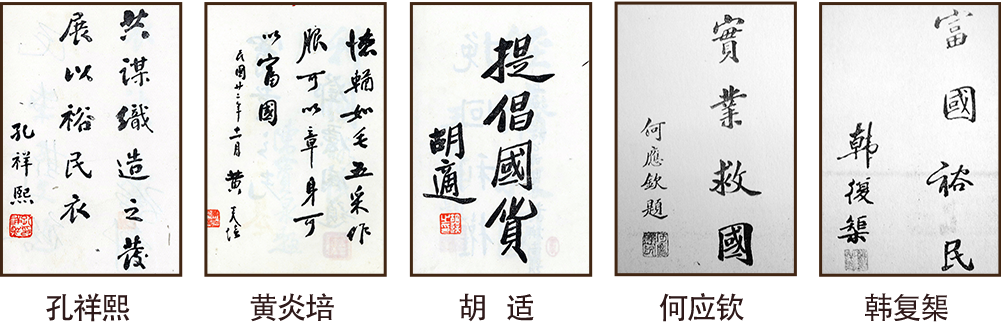 共謀織造之發
展以裕民衣
孔祥熙
德輶如毛五采作
服可以章身可
以富國
民國廿二年十二月 黄炎培
提倡國貨
胡適
實業救國
何應欽題
富國裕民
韓復榘
孔祥熙
黄炎培
胡 适
何应钦
韩复榘